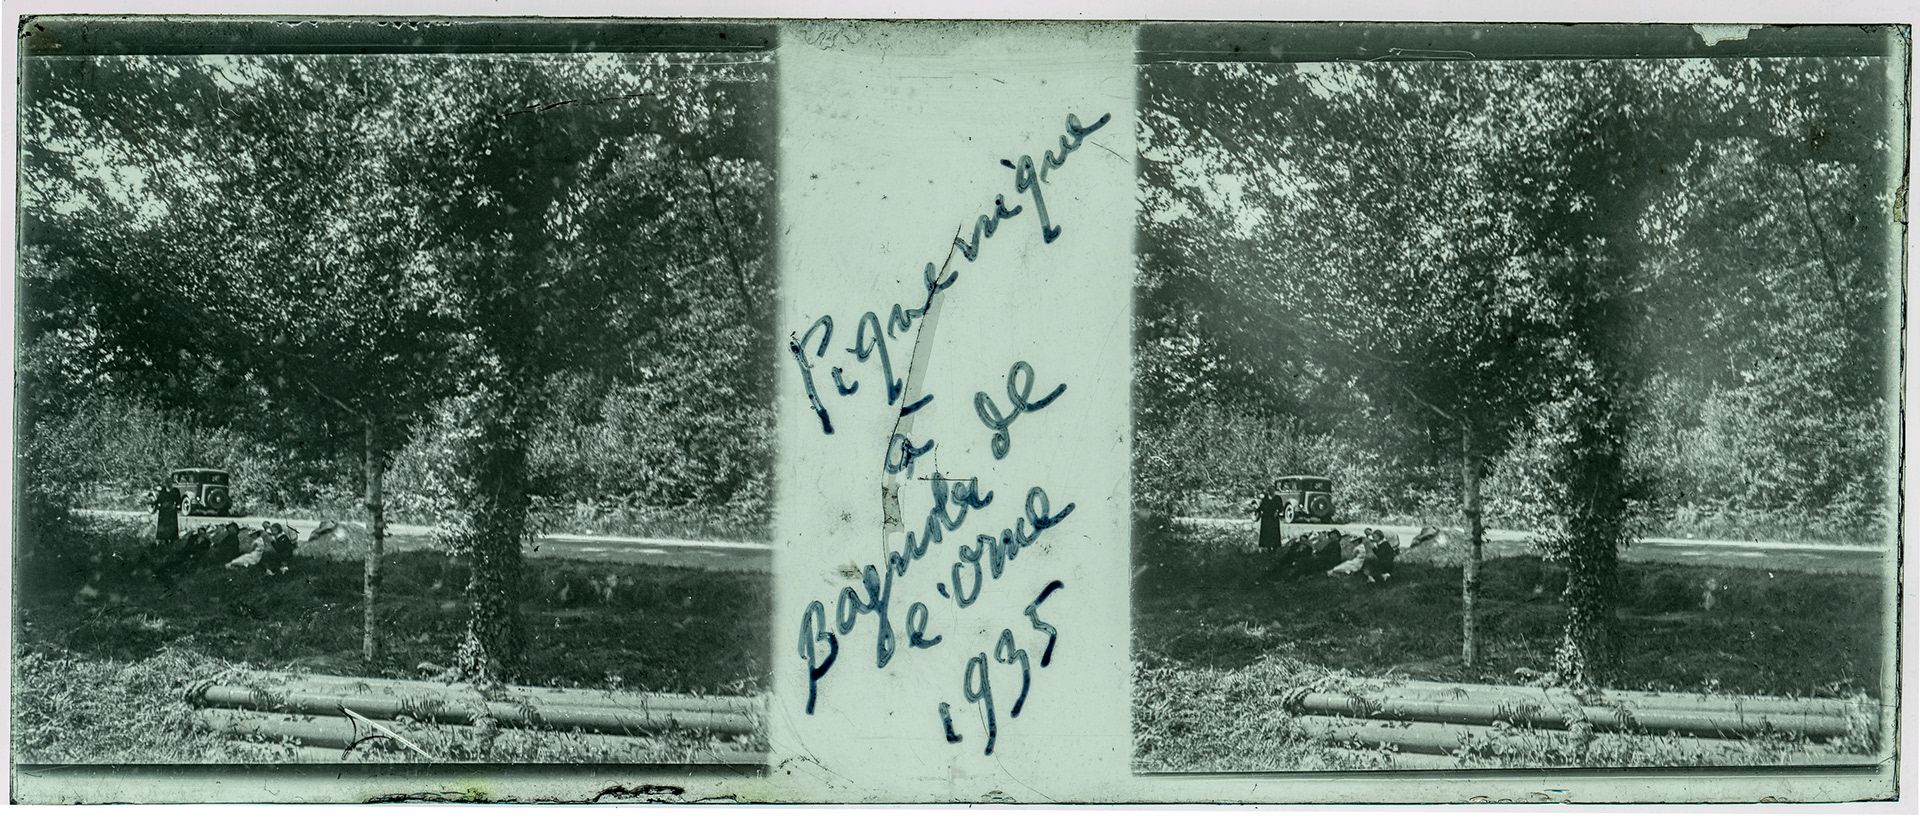 Pique nique
à
Bagnoles de
l'orne
1935